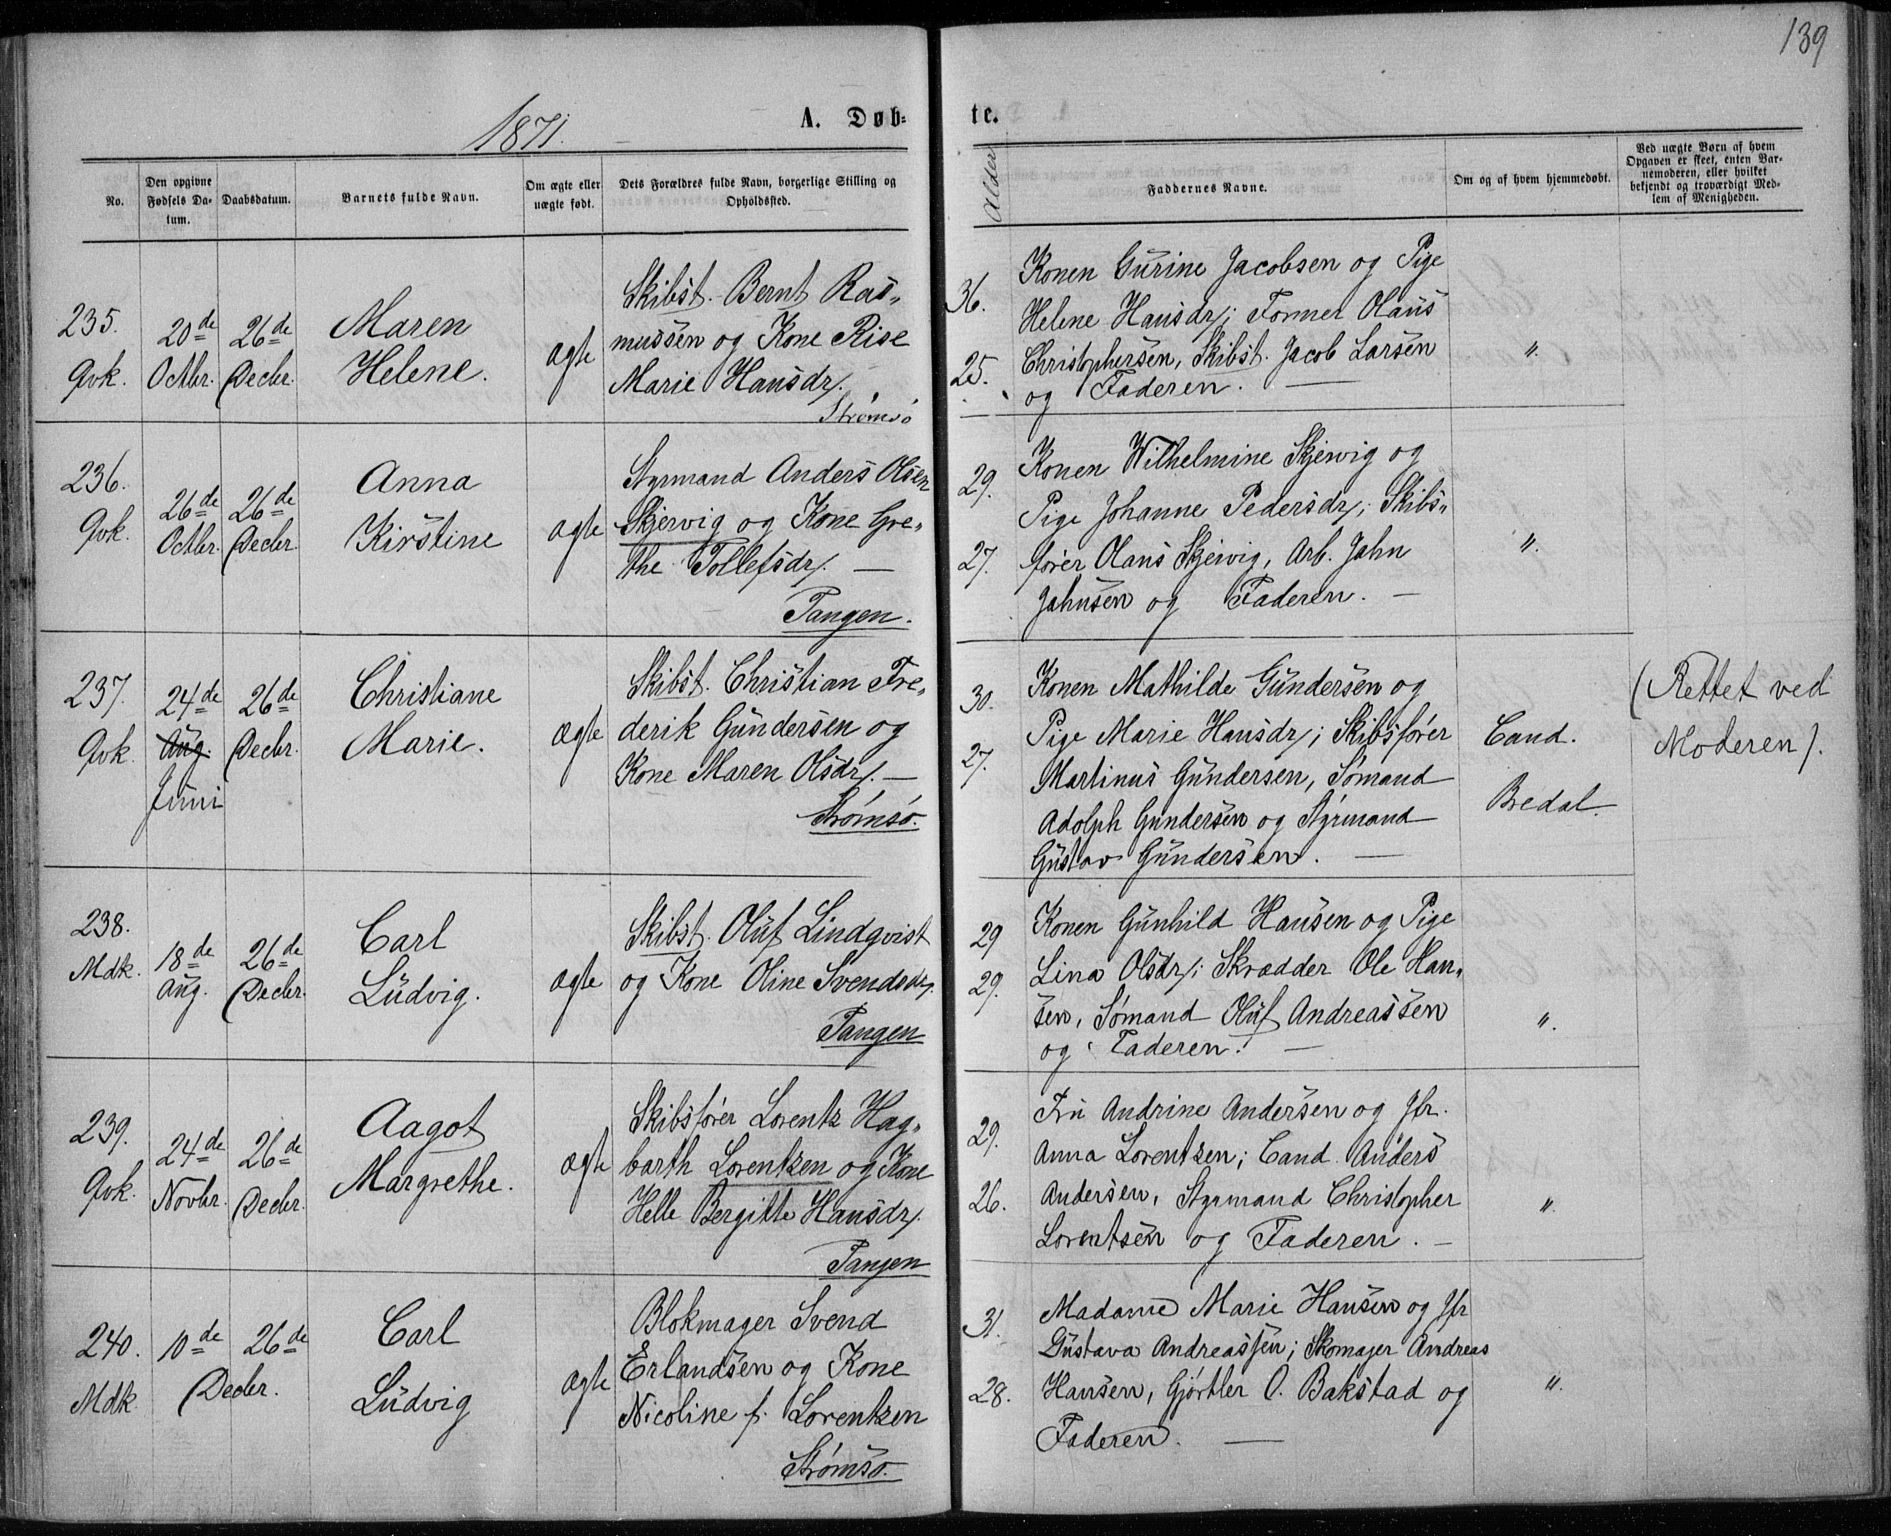 139
1871.
A. Døb-
te.
No.
Den opgivne
Fødsels Da-
tum.
Daabsdatum.
Barnets fulde Navn.
Om ægte eller
uægte født.
Dets Forældres fulde Navn, borgerlige Stilling og
Opholdssted.
Alder
Faddernes Navne.
Om og af hvem hjemmedøbt.
Ved uægte Børn af hvem
Opgaven er skeet, enten Bar-
nemoderen, eller hvilket
bekjendt og troværdigt Med-
lem af Menigheden.
235.
Qvk.
20de
Octbr.
26de
Decbr.
Maren
Helene.
ægte
Skibst. Bernt Ras-
mussen og Kone Rise
Marie Hansdr/.
Strømsø
36.
25.
Konen Gurine Jacobsen og Pige
Helene Hansdr/; Former Hans
Christophersen, Skibst. Jacob Larsen
og Faderen. —
"
236.
Qvk.
26de
Octbr.
26de
Decbr.
Anna
Kirstine
ægte
Styrmand Anders Olsen
Skjervig og Kone Gre-
the Tollefsdr/. —
Tangen.
29.
27.
Konen Wilhelmine Skjervig og
Pige Johanne Pedersdr/; Skibs-
fører Hans Skjervig, Arb. John
Johnsen og Faderen. —
"
237.
Qvk.
24de
Aug.
Juni
26de
Decbr.
Christiane
Marie.
ægte
Skibst. Christian Fre-
derik Gundersen og
Kone Maren Olsdr/. —
Strømsø.
30.
27.
Konen Mathilde Gundersen og
Pige Marie Hansdr/; Skibsfører
Martinus Gundersen, Sømand
Adolph Gundersen og Styrmand
Gustav Gundersen. —
Cand.
Bredal.
(Rettet ved
Moderen).
238.
Mdk.
18de
Aug.
26de
Decbr.
Carl
Ludvig.
ægte
Skibst. Oluf Lindqvist
og Kone Oline Svendsdr/.
Tangen
29
29.
Konen Gunhild Hansen og Pige
Lina Olsdr/; Skrædder Ole Han-
sen, Sømand Oluf Andreassen
og Faderen. —
"
239.
Qvk.
24de
Novbr.
26de
Decbr.
Aagot
Margrethe.
ægte
Skibsfører Lorentz Hag-
barth Lorentzen og Kone
Helle Bergitte Hansdr/.
Tangen
29.
26.
Fru Andrine Andersen og Jfr.
Anna Lorentzen; Cand. Anders
Andersen, Styrmand Christopher
Lorentsen og Faderen. —
"
240.
Mdk
10de
26de
Decbr.
Carl
Ludvig
ægte
Blokmager Svend
Erlandsen og Kone
Nicoline f. Lorentzen
Strømsø.
31.
28.
Madame Marie Hansen og Jfr
Gustava Andreassen; Skomager Andreas
Hansen, Gjørtler O. Bakstad og
Faderen. —
"